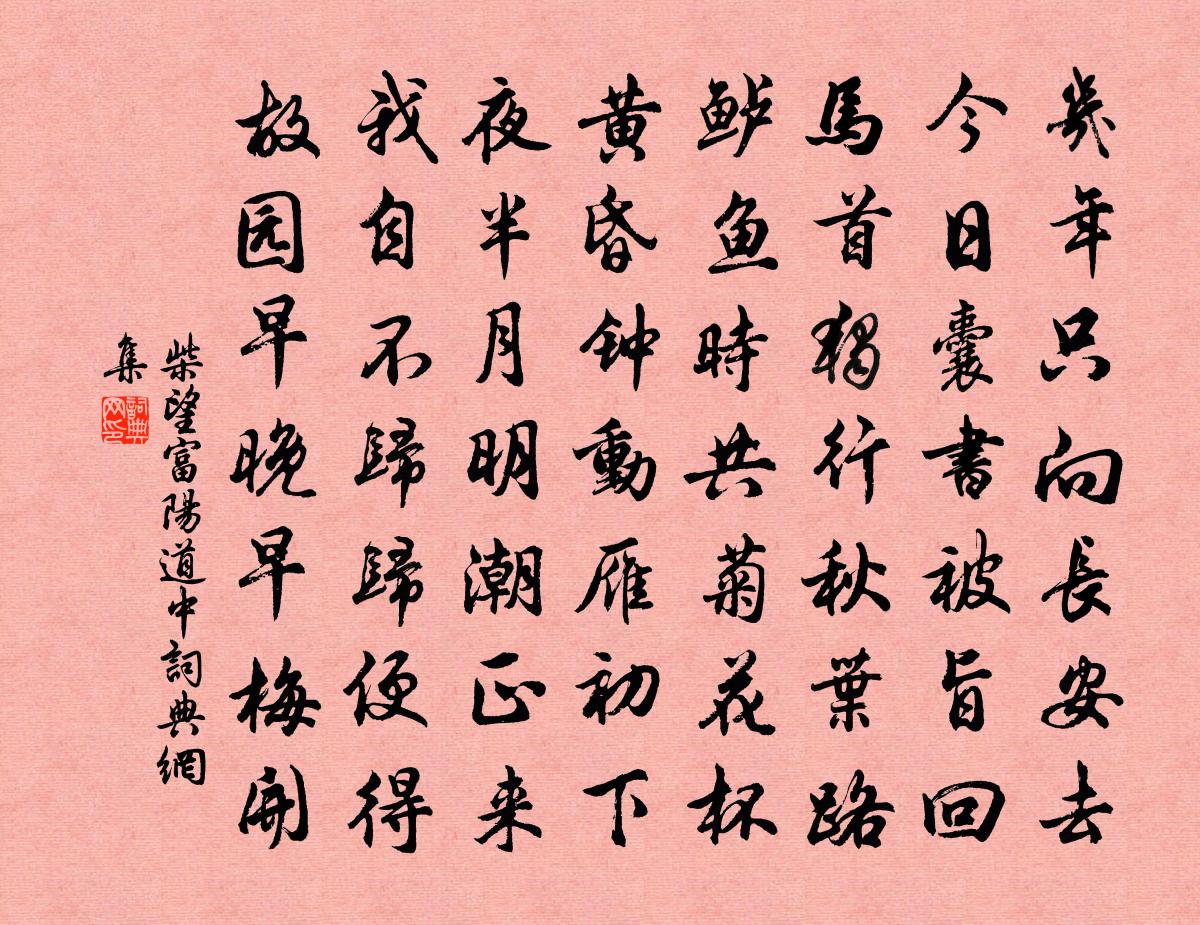 幾年只向長安去
今日囊書被旨回
馬首獨行秋葉路
鲈鱼時共菊花杯
黄昏钟動雁初下
夜半月明潮正来
我自不歸歸便得
故园早晚早梅開
柴望富陽道中詞典網
集
詞典
网印